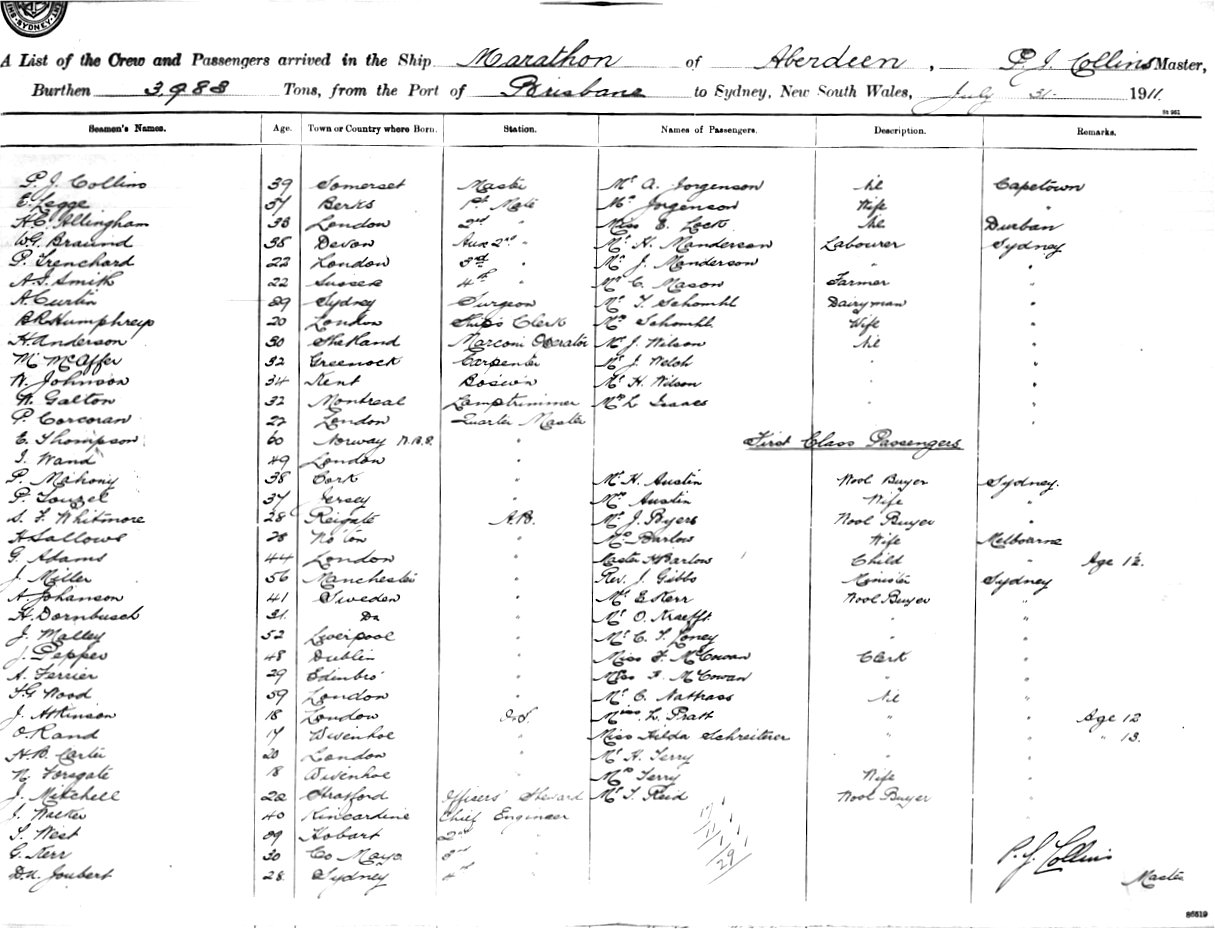 SYDNEY
A List of the Crew and Passengers arrived in the Ship Marathon of Aberdeen, P. J. Collins Master,
Burthen 3983 Tons, from the Port of Brisbane to Sydney, New South Wales, July 31 1911.
St 961
Seamen's Names. Age. Town or Country where Born. Station. Names of Passengers. Description. Remarks.
P. J. Collins 39 Somerset Master Mr A. Jorgenson Nil Capetown
E. Legge 37 Berks 1st Mate Mrs Jorgenson Wife "
H.E. Allingham 33 London 2nd " Miss E. Lock Nil Durban
W.G. Braund 38 Devon Aux 2nd " Mr H. Manderson Labourer Sydney
P. Trenchard 22 London 3rd " Mr J. Manderson " "
A.S. Smith 22 Sussex 4th " Mr C. Mason Farmer "
A. Curtin 29 Sydney Surgeon Mr T. Schomhl Dairyman "
B.R. Humphreys 20 London Ship's Clerk Mrs Schomhl Wife "
H. Anderson 30 Shetland Marconi Operator Mr J. Wilson Nil "
M. McAffer 32 Greenock Carpenter Mr J. Welch " "
W. Johnson 34 Kent Bos'wn Mr H. Wilson " "
W. Galton 32 Montreal Lamptrimmer Mrs L. Isaacs " "
P. Corcoran 27 London Quarter Master
E. Thompson 60 Norway N.B.S. " First Class Passengers
J. Wand 49 London "
P. Mahony 38 Cork " Mr H. Austin Wool Buyer Sydney.
P. Touzel 37 Jersey " Mrs Austin Wife "
S. F. Whitmore 28 Reigate A.B. Mr J. Byers Wool Buyer "
H. Sallows 28 " Mrs Barlow Wife Melbourne
G. Adams 44 London " Master H Barlow Child " Age 12.
J. Miller 56 Manchester " Rev. J. Gibbs Minister Sydney
A. Johanson 41 Sweden " Mr E Kerr Wool Buyer "
H. Dornbusch 31. Do " Mr O. Kraefft. " "
J. Malley 52 Liverpool " Mr C. T. Loney " "
J. Pepper 48 Dublin " Miss F. McCowan Clerk "
A. Ferrier 29 Edinbro' " Miss A. McCowan " "
F.G. Wood 59 London " Mr C. Nathass Nil "
J. Atkinson 18 London O.S. Miss L. Pratt " Age 12
O. Rand 17 Wivenhoe " Miss Hilda Schreiterer " " 13.
H.B. Carter 20 London " Mr H. Terry " "
N. Forsgate 18 Wivenhoe " Mrs Terry Wife "
J. Mitchell 22 Stratford Officers' Steward Mr T. Reid Wool Buyer "
J. Walker 40 Kincardine Chief Engineer
S. West 39 Hobart 2nd "
G. Kerr 30 Co Mayo 3rd " 29 P. J. Collins
D.U. Joubert 28 Sydney 4th " Master
86519